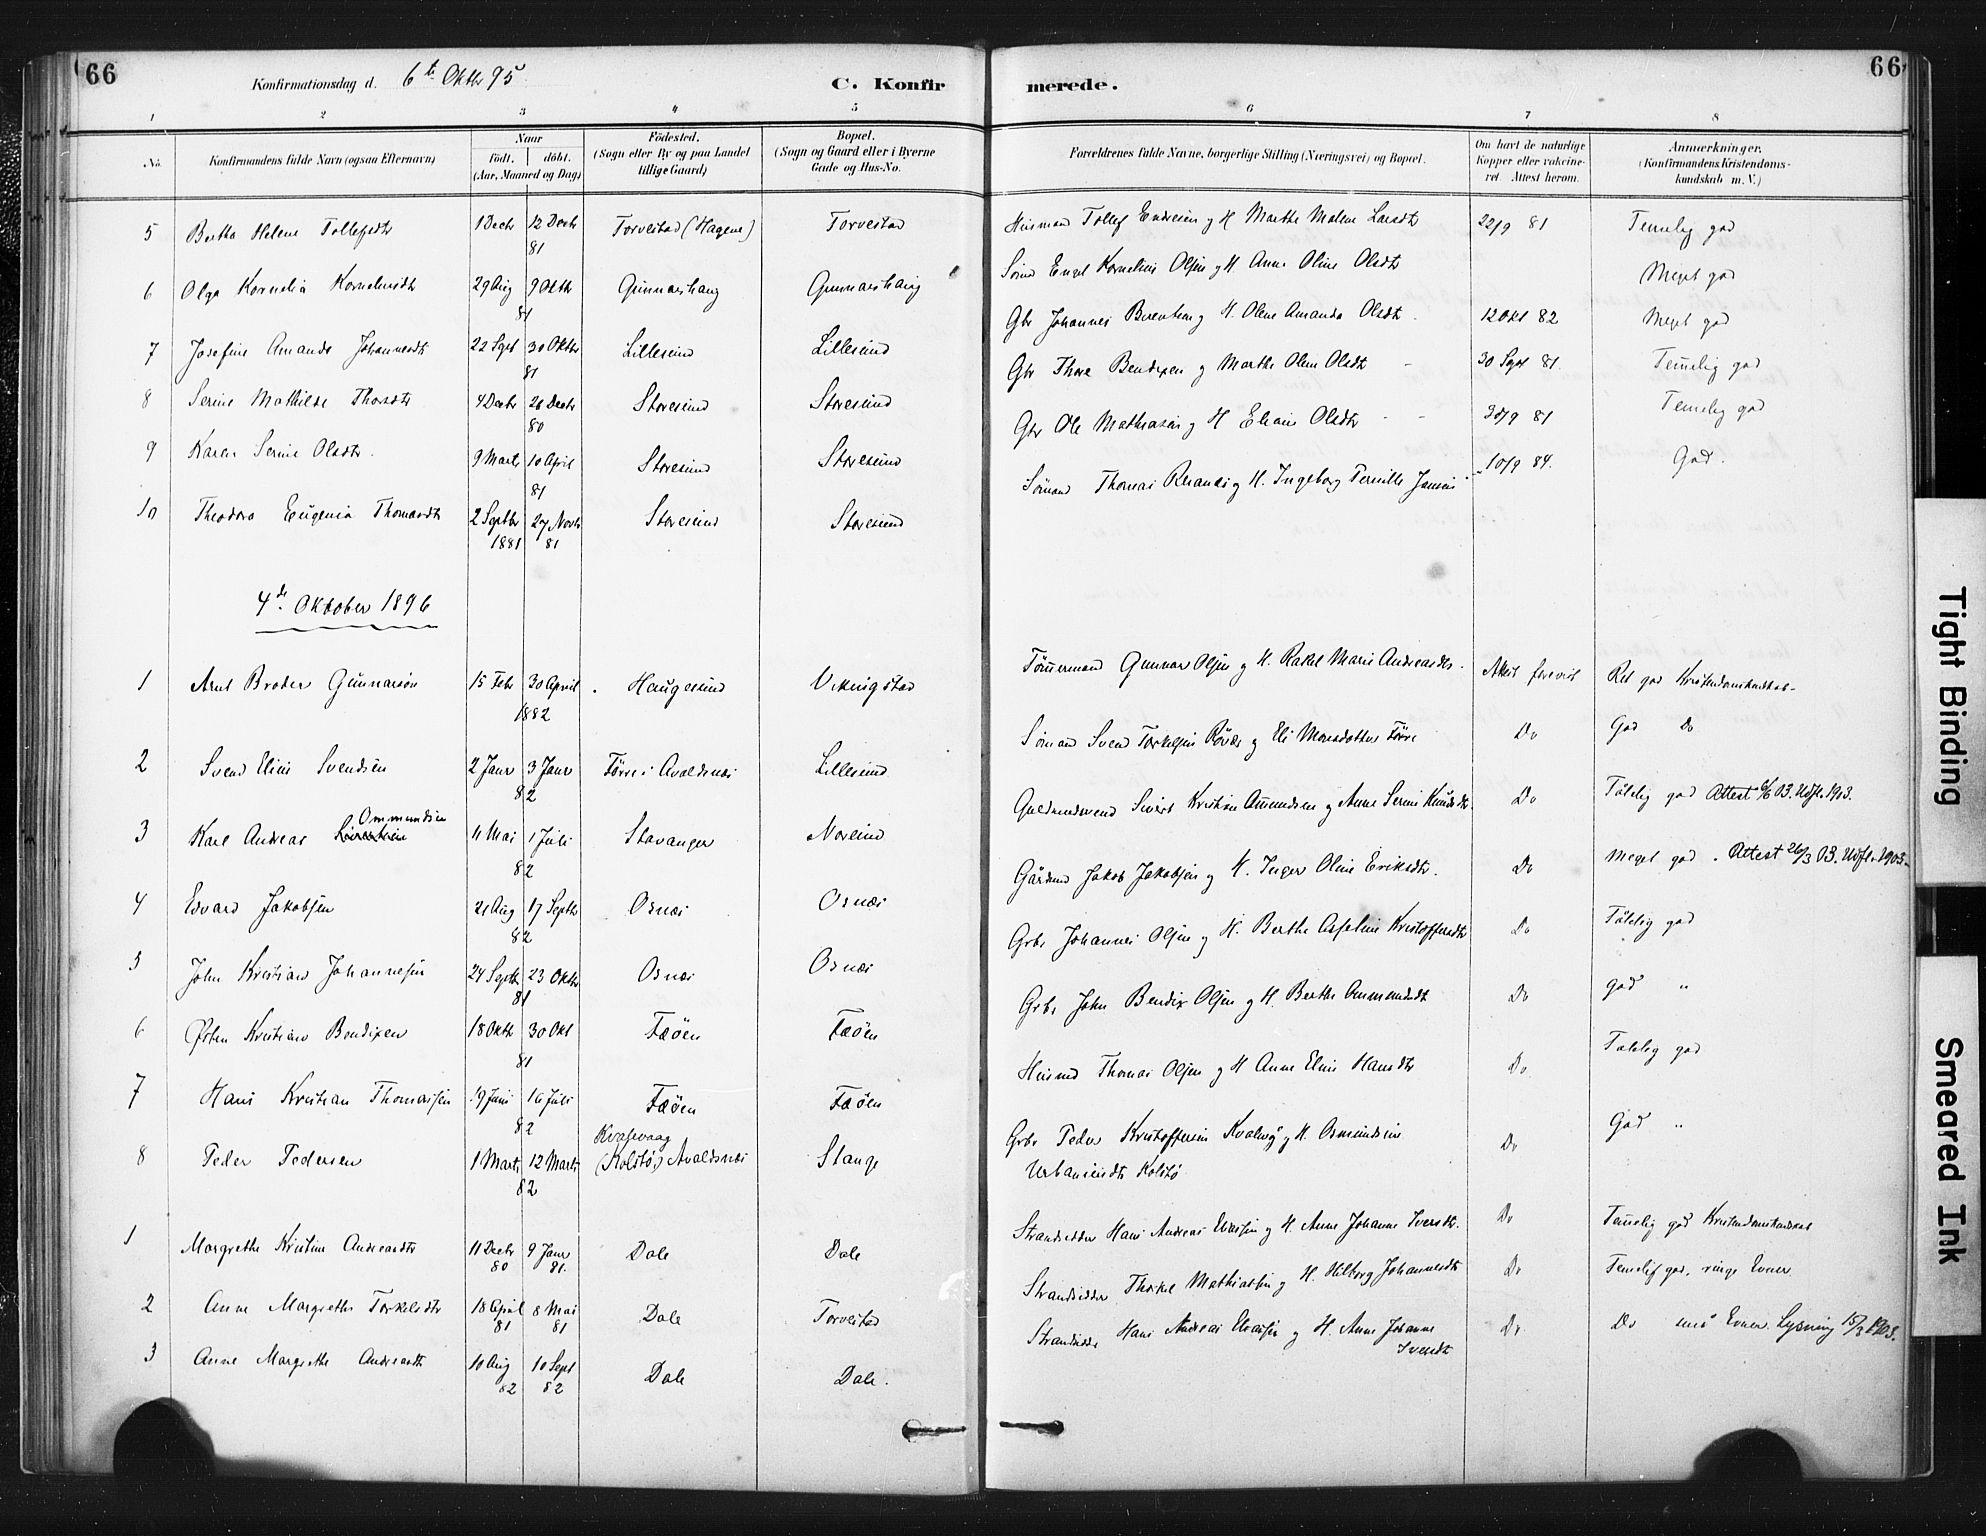 66
66
Konfirmationsdag d. 6te Oktbr 95
C. Konfirmerede.
1 2 3 4 5 6 7 8
No.
Konfirmandens fulde Navn (ogsaa Efternavn)
Naar
födt. döbt.
(Aar, Maaned og Dag)
Födested.
(Sogn eller By og paa Landet tillige Gaard)
Bopæl.
(Sogn og Gaard eller i Byerne Gade og Hus-No.
Forældrenes fulde Navne, borgerlige Stilling (Næringsvei) og Bopæl.
Om havt de naturlige Kopper eller vakcineret. Attest herom.
Anmærkninger.
(Konfirmandens Kristendomskundskab m. V.)
5 Bertha Helene Tollefsdtr 1 Decbr 12 Decbr 81 Torvestad (Hagene) Torvestad Husmand Tollef Endresen og H Marthe Malene Larsdtr 22/9 81 Temelig god
6 Olga Kornelia Kornelusdtr 29 Aug 9 Oktbr 81 Gunnarshaug Gunnarshaug Kornelius Olsen og H. Anne Oline Olsdtr Meget god
7 Josefine Amanda Johannesdtr 22 Sept 30 Oktbr 81 Lillesund Lillesund Gbr Johannes og H. Olene Amanda Olsdtr 12 Okt 82 Meget god
8 Serine Mathilde Thorsdtr 4 Decbr 26 Decbr 80 Storesund Storesund Gbr Thore Bendixen og Marthe Olene Olsdtr 30 Sept 81. Temelig god
9 Karen Serine Olsdtr. 9 Marts 10 April 81 Storesund Storesund Gbr Ole Mathiasen og H Olsdtr 30/9 81 Temelig god
10 Theodora Eugenia Thomasdtr 2 Septbr 1881 27 Novbr 81 Storesund Storesund Sømand Thomas og H. Ingeborg Pernille 10/9 84. God.
4de Oktober 1896
1 Arnt Broder Gunnarsøn 15 Febr 30 April 1882 Haugesund Vikingstad Tømmermand Gunnar Olsen og H. Rakel Marie Andreasdtr. Attest forevist Ret god Kristendomskundskab
2 Svend Elius Svendsen 2 Janr 3 Janr 82 Førre i Avaldsnæs Lillesund Sømand Svend Torkelsen Røvær og Eli Monsdotter Førre Do God Do
3 Karl Andreas Ommundsen 11 Mai 1 Juli 82 Stavanger Norsund Guldsmedsvend Sivert Kristian Ommundsen og Anne Serine Knudsdtr. Do Tålelig god Attest 6/6 03. Udfl. 1903.
4 Edvard Jakobsen 21 Aug 17 Septbr 82 Osnæs Osnæs Gårdmd Jakob Jakobsen og H. Inger Oline Eriksdtr. Do Meget god. Attest 26/3 03. Udfl. 1903.
5 John Kristian Johannesen 24 Septbr 23 Oktbr 81 Osnæs Osnæs Grbr Johannes Olsen og H. Berthe Kristoffersdtr Do Tålelig god
6 Østen Kristian Bendixen 18 Oktb 30 Okt 81 Fæøen Fæøen Grbr John Bendix Olsen og H. Berthe Ommundsdt Do god "
7 Hans Kristian Thomassen 19 Juni 16 Juli 82 Fæøen Fæøen Husmd Thomas Olsen og H Anne Eline Hansdtr Do Tålelig god
8 Peder Pedersen 1 Marts 12 Marts 82 Kvalevaag (Kolstø) Avaldsnæs Stange Grbr Peder Kristoffersen Kvalevåg og H. Osmundine Urbaniusdtr Kolstø Do God "
1 Margrethe Kristine Andreasdtr 11 Decbr 80 9 Janr 81. Dale Dale Strandsidder Hans Andreas og H. Anne Johanne Iversdtr. Do Temelig god Kristendomskundskab
2 Anne Margrethe Torkelsdtr 18 April 81 8 Mai 81 Dale Torvestad Strandsidder Thorkel Mathiassen og H. Hilborg Johannesdtr Do Temelig god, ringe Evner
3 Anne Margrethe Andreasdtr 10 Aug 82 10 Sept 82 Dale Dale. Strandsidder Hans Andreas og H. Anne Johanne Iversdt Do Do små Evner. Lysning 15/3 1903.
Tight Binding
Smeared Ink